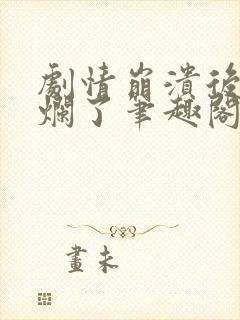 劇情崩潰後
爛了筆趣閣
畫未